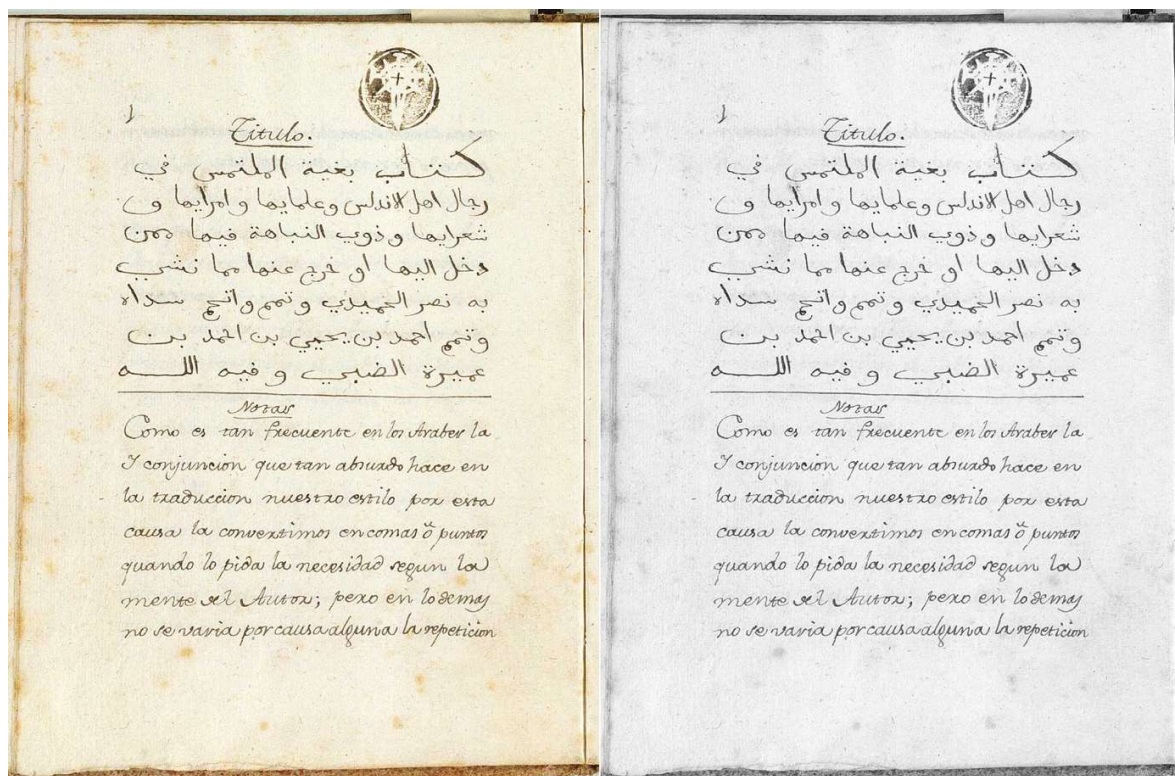 Titulo.
كتاب بغية الملتمس في
رجال اهل الاندلس وعلمايها وامرايها و
شعرايها وذوي النباهة فيها ممن
دخل اليها او خرج عنها مما نشب
به نصر الحميدي وتمم وانجح سداه
وتمم احمد بن يحيي بن احمد بن
عميرة الضبي وفيه اللــه
Notas
Como es tan frecuente en los Arabes la
Y conjuncion que tan absurdo hace en
la traduccion nuestro estilo por esta
causa la convertimos en comas ô puntos
quando lo pida la necesidad segun la
mente del Autor; pero en lo demas
no se varia por causa alguna la repeticion
Titulo.
كتاب بغية الملتمس في
رجال اهل الاندلس وعلمايها وامرايها و
شعرايها وذوي النباهة فيها ممن
دخل اليها او خرج عنها مما نشب
به نصر الحميدي وتمم وانجح سداه
وتمم احمد بن يحيي بن احمد بن
عميرة الضبي وفيه اللــه
Notas
Como es tan frecuente en los Arabes la
Y conjuncion que tan absurdo hace en
la traduccion nuestro estilo por esta
causa la convertimos en comas ô puntos
quando lo pida la necesidad segun la
mente del Autor; pero en lo demas
no se varia por causa alguna la repeticion